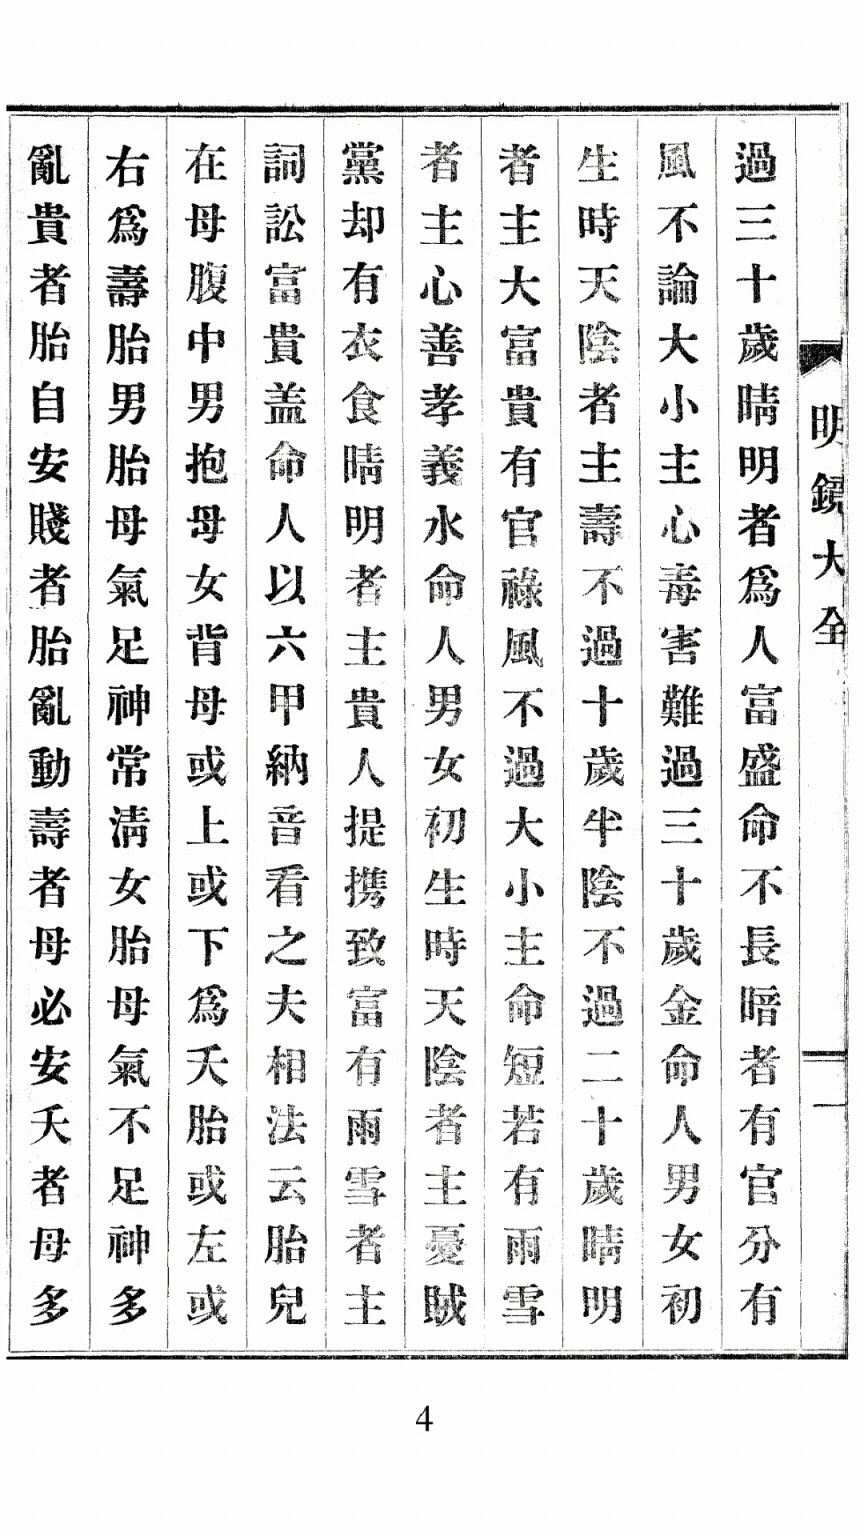 明鏡大全
一
過三十歲晴明者爲人富盛命不長暗者有官分有
風不論大小主心毒害難過三十歲金命人男女初
生時天陰者主壽不過十歲半陰不過二十歲晴明
者主大富貴有官祿風不過大小主命短若有雨雪
者主心善孝義水命人男女初生時天陰者主憂賊
黨却有衣食晴明者主貴人提携致富有雨雪者主
詞訟富貴盖命人以六甲納音看之夫相法云胎兒
在母腹中男抱母女背母或上或下爲夭胎或左或
右爲壽胎男胎母氣足神常淸女胎母氣不足神多
亂貴者胎自安賤者胎亂動壽者母必安夭者母多
4